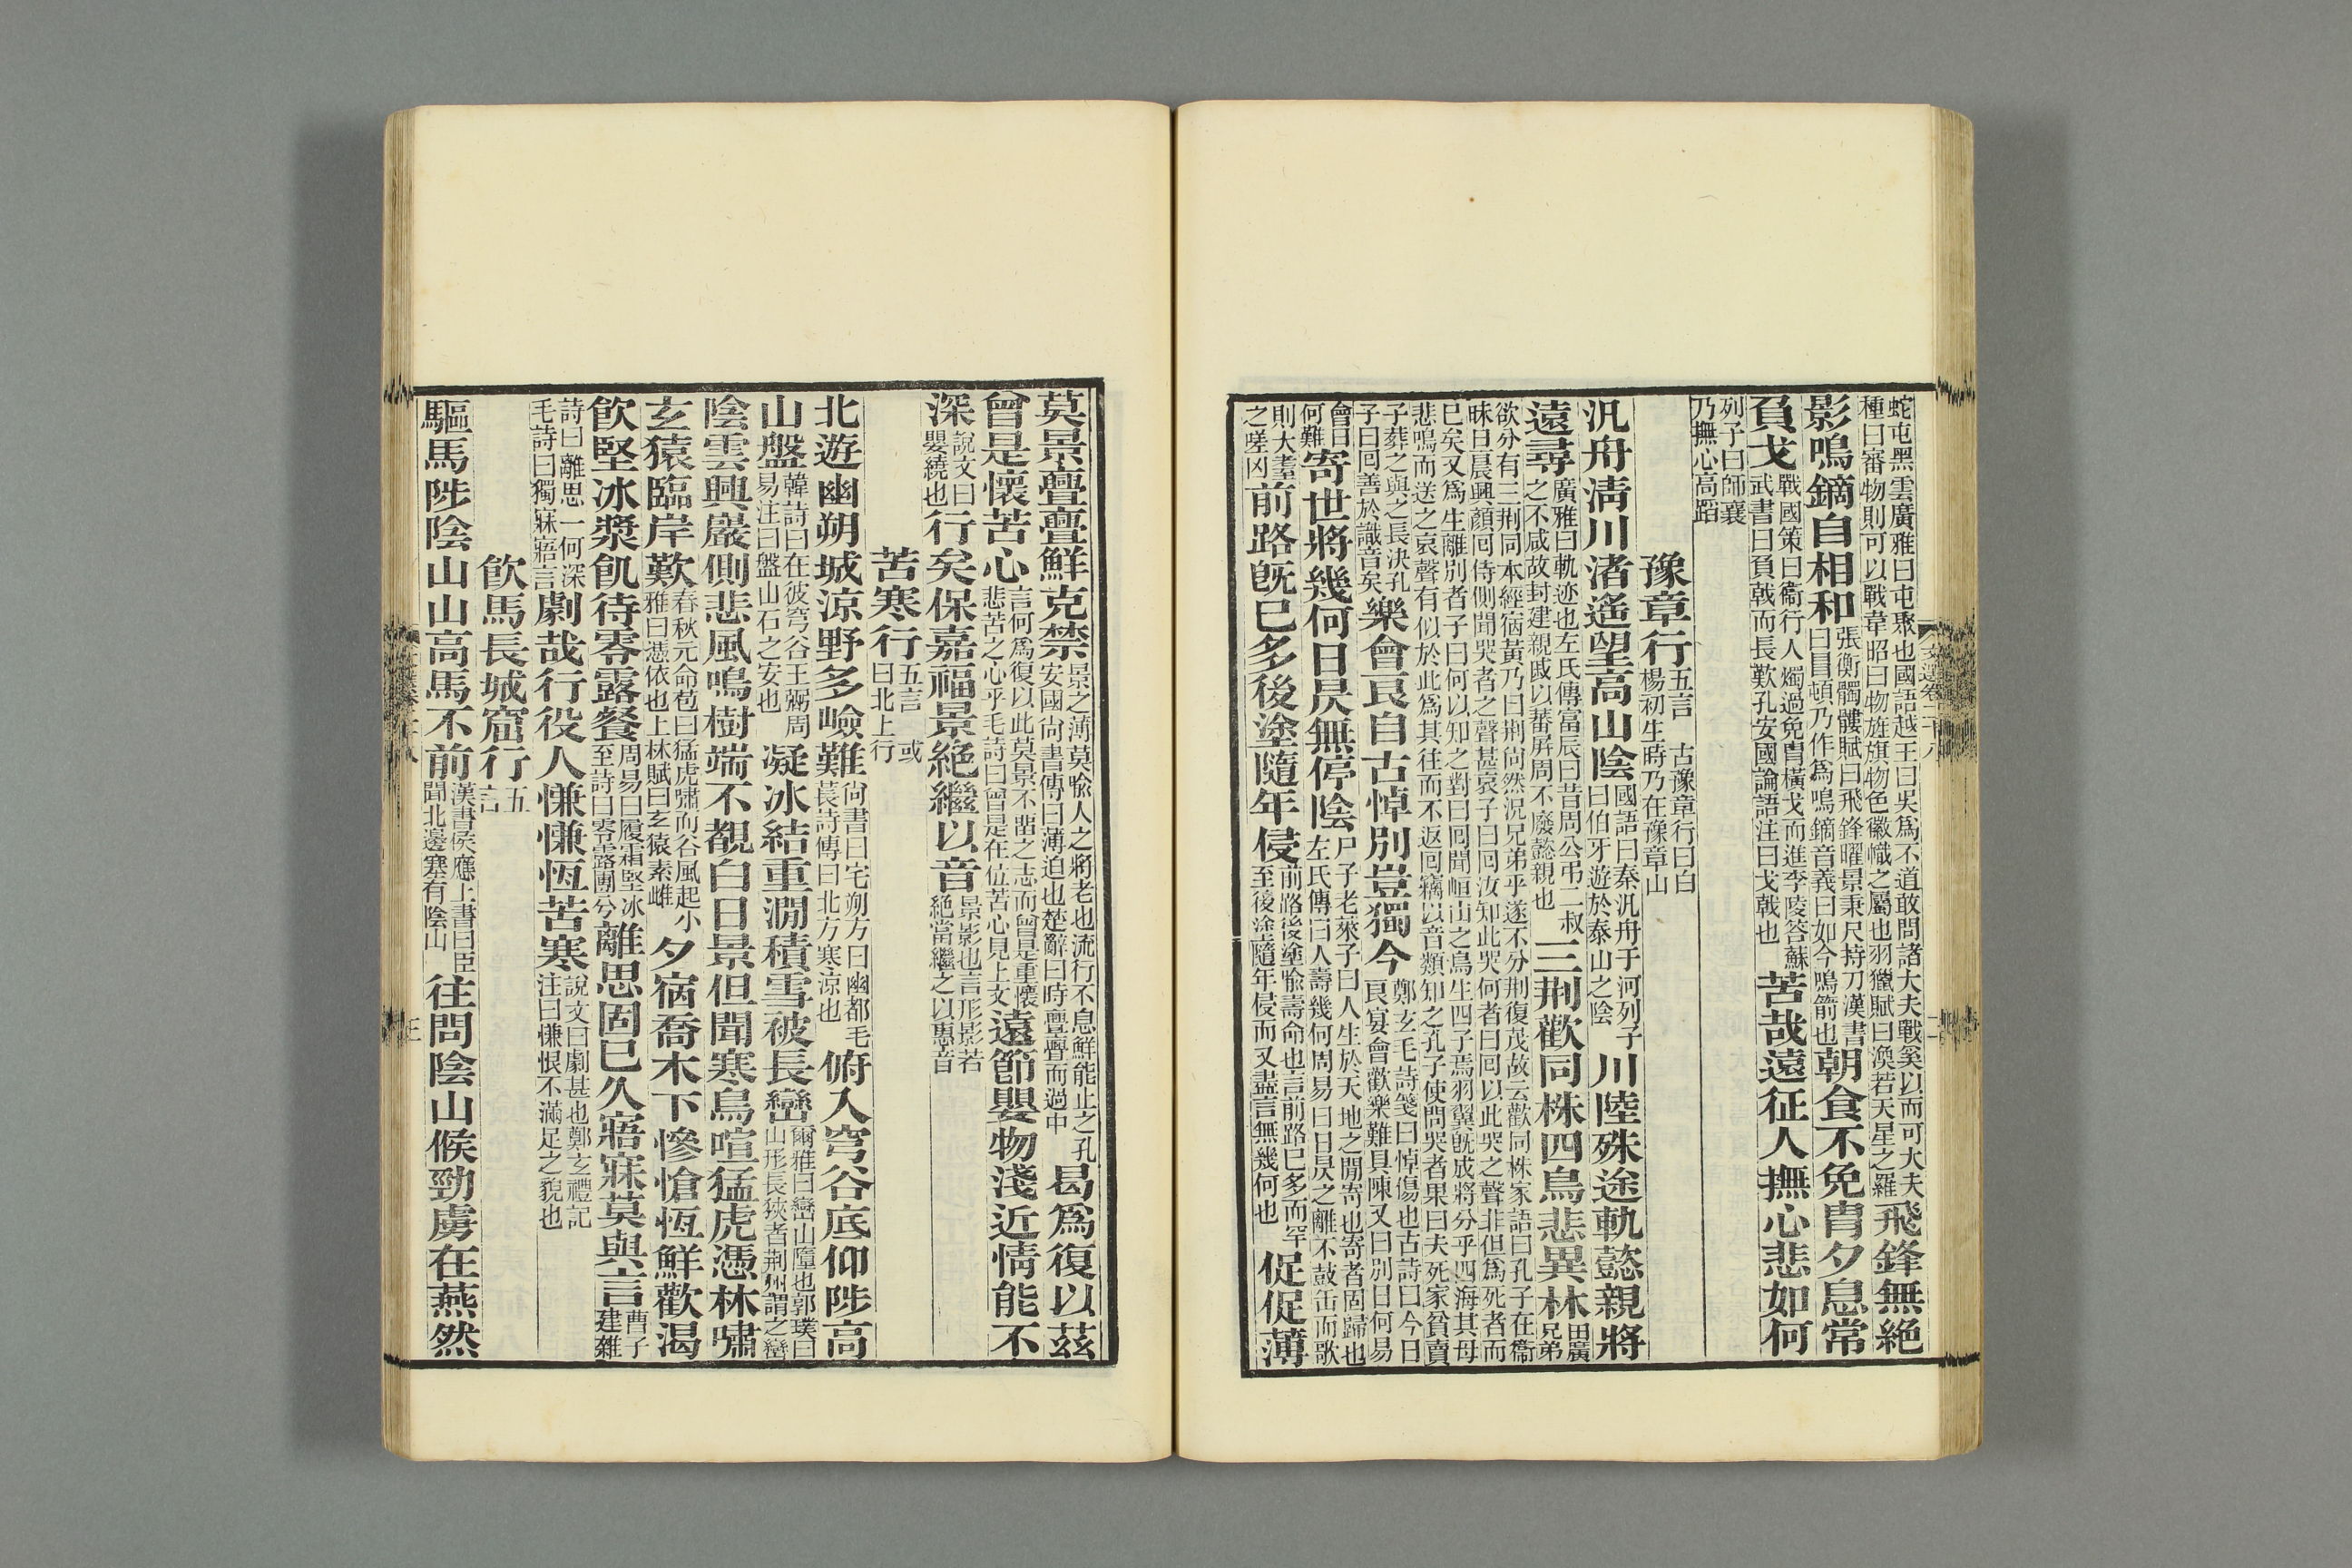 蛇屯黑雲廣雅曰屯聚也國語越王曰吳爲不道敢問諸大夫戰奚以而可大夫種曰審物則可以戰韋昭曰物旌旗物色徽幟之屬也羽獵賦曰渙若天星之羅飛鋒無絕
影鳴鏑自相和張衡髑髏賦曰飛鋒曜景秉尺持刀漢書曰冒頓乃作爲鳴鏑音義曰如今鳴箭也朝食不免冑夕息常
負戈戰國策曰衞行人燭過免冑橫戈而進李陵答蘇武書曰負戟而長歎孔安國論語注曰戈戟也苦哉遠征人撫心悲如何
列子曰師襄乃撫心高蹈
豫章行五言 古豫章行曰白楊初生時乃在豫章山
汎舟清川渚遙望高山陰國語曰秦汎舟于河列子曰伯牙遊於泰山之陰川陸殊途軌懿親將
遠尋廣雅曰軌迹也左氏傳富辰曰昔周公弔二叔之不咸故封建親戚以蕃屏周不廢懿親也三荆歡同株四鳥悲異林田廣兄弟
欲分有三荆同本經宿黃乃曰荆尚然況兄弟乎遂不分荆復茂故云歡同株家語曰孔子在衞昧旦晨興顏回侍側聞哭者之聲甚哀子曰回汝知此哭何者曰回以此哭之聲非但爲死者而
已矣又爲生離別者子曰何以知之對曰回聞峘山之鳥生四子焉羽翼旣成將分乎四海其母悲鳴而送之哀聲有似於此爲其往而不返回竊以音類知之孔子使問哭者果曰夫死家貧賣
子葬之與之長決孔子曰回善於識音矣樂會良自古悼別豈獨今鄭玄毛詩箋曰悼傷也古詩曰今日良宴會歡樂難具陳又曰別日何易
會日何難寄世將幾何日昃無停陰尸子老萊子曰人生於天地之閒寄也寄者固歸也左氏傳曰人壽幾何周易曰日昃之離不鼓缶而歌
則大耋之嗟凶前路旣已多後塗隨年侵前路後塗喻壽命也言前路已多而罕至後塗隨年侵而又盡言無幾何也促促薄
莫景亹亹鮮克禁景之薄莫喻人之將老也流行不息鮮能止之孔安國尚書傳曰薄迫也楚辭曰時亹亹而過中曷爲復以茲
曾是懷苦心言何爲復以此莫景不留之志而曾是重懷悲苦之心乎毛詩曰曾是在位苦心見上文遠節嬰物淺近情能不
深說文曰嬰繞也行矣保嘉福景絕繼以音景影也言形影若絕當繼之以惠音
苦寒行五言 或曰北上行
北遊幽朔城涼野多嶮難尚書曰宅朔方曰幽都毛萇詩傳曰北方寒涼也俯入穹谷底仰陟高
山盤韓詩曰在彼穹谷王弼周易注曰盤山石之安也凝冰結重澗積雪被長巒爾雅曰巒山墮也郭璞曰山形長狹者荆州謂之巒
陰雲興巖側悲風鳴樹端不覩白日景但聞寒鳥喧猛虎憑林嘯
玄猿臨岸歎春秋元命苞曰猛虎嘯而谷風起小雅曰憑依也上林賦曰玄猿素雌夕宿喬木下慘愴恆鮮歡渴
飲堅冰漿飢待零露餐周易曰履霜堅冰至詩曰零露團兮離思固已久寤寐莫與言曹子建雜
詩曰離思一何深毛詩曰獨寐寤言劇哉行役人慊慊恆苦寒說文曰劇甚也鄭玄禮記注曰慊恨不滿足之貌也
飲馬長城窟行五言
驅馬陟陰山山高馬不前漢書侯應上書曰臣聞北邊塞有陰山往問陰山候勁虜在燕然